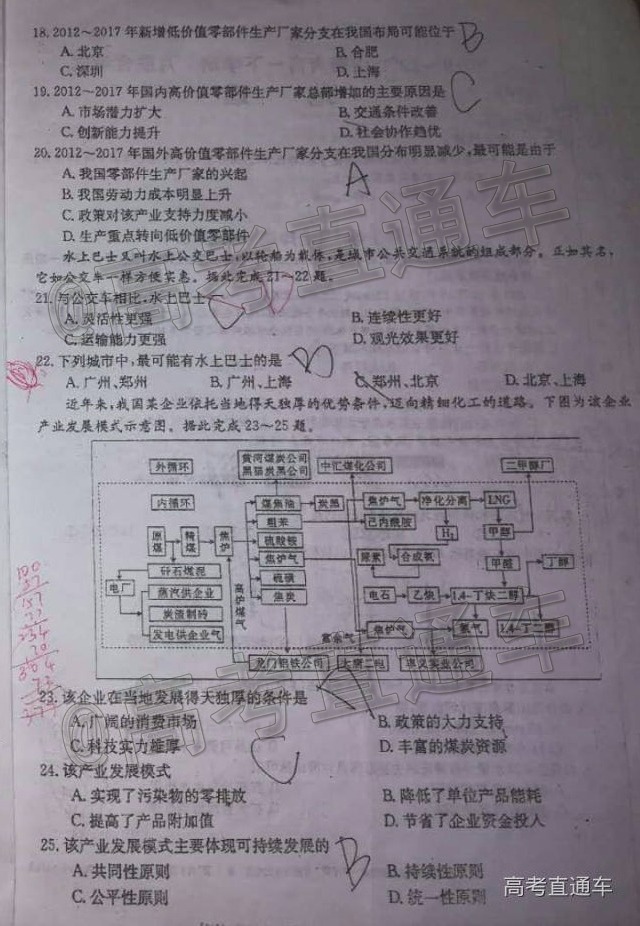 18. 2012～2017年新增低价值零部件生产厂家分支在我国布局可能位于 B
A. 北京 B. 合肥
C. 深圳 D. 上海
19. 2012～2017年国内高价值零部件生产厂家总部增加的主要原因是 C
A. 市场潜力扩大 B. 交通条件改善
C. 创新能力提升 D. 社会协作趋优
20. 2012～2017年国外高价值零部件生产厂家分支在我国分布明显减少,最可能是由于
A. 我国零部件生产厂家的兴起 A
B. 我国劳动力成本明显上升
C. 政策对该产业支持力度减小
D. 生产重点转向低价值零部件
水上巴士又叫水上公交巴士,以轮船为载体,是城市公共交通系统的组成部分。正如其名,
它如公交车一样方便实惠。据此完成21～22题。
21. 与公交车相比,水上巴士
A. 灵活性更强 B. 连续性更好
C. 运输能力更强 D. 观光效果更好
22. 下列城市中,最可能有水上巴士的是
A. 广州、郑州 B. 广州、上海 C. 郑州、北京 D. 北京、上海
近年来,我国某企业依托当地得天独厚的优势条件,迈向精细化工的道路。下图为该企业
产业发展模式示意图。据此完成23～25题。
外循环 黄河煤炭公司 黑猫炭黑公司 中汇煤化公司 二甲醇厂
内循环 煤焦油 炭黑 焦炉气 净化分离 LNG
原煤 精煤 焦炉 粗苯 己内酰胺 H₂ 甲醇
硫酸铵 尿素 合成氨
电厂 矸石煤泥 焦炉气 甲醛 丁醇
蒸汽供企业 硫磺
炭渣制砖 高炉煤气 焦炭 电石 乙炔 1,4-丁炔二醇
发电供企业气 富余气 焦炉气 氢气 1,4-丁二醇
龙门钢铁公司
23. 该企业在当地发展得天独厚的条件是
A. 广阔的消费市场 B. 政策的大力支持
C. 科技实力雄厚 D. 丰富的煤炭资源
24. 该产业发展模式 C
A. 实现了污染物的零排放 B. 降低了单位产品能耗
C. 提高了产品附加值 D. 节省了企业资金投入
25. 该产业发展模式主要体现可持续发展的 B
A. 共同性原则 B. 持续性原则
C. 公平性原则 D. 统一性原则
@高考直通车
@高考直通车
高考直通车